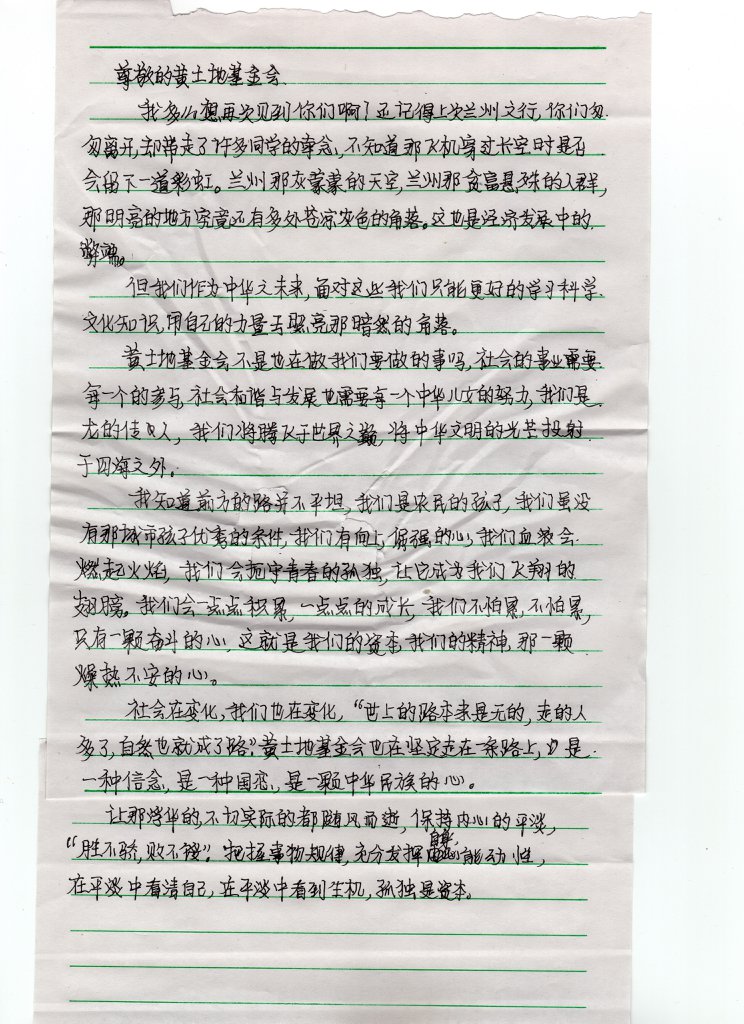 尊敬的黄土地基金会.
我多么想再次见到你们啊！还记得上次兰州之行,你们匆
匆离开,却带走了许多同学的牵念,不知道那飞机穿过长空时是否
会留下一道彩虹。兰州那灰蒙蒙的天空,兰州那贫富悬殊的人群,
那明亮的地方究竟还有多处苍凉灰色的角落。这也是经济发展中的
弊端。
但我们作为中华之未来,面对这些我们只能更好的学习科学
文化知识,用自己的力量去照亮那暗然的角落。
黄土地基金会不是也在做我们要做的事吗,社会的事业需要
每一个的参与,社会和谐与发展也需要每一个中华儿女的努力,我们是
龙的传人, 我们将腾飞于世界之巅,将中华文明的光芒投射
于四海之外.
我知道前方的路并不平坦,我们是农民的孩子,我们虽没
有那城市孩子优离的条件,我们有向上,倔强的心,我们血液会
燃起火焰,我们会把守青春的孤独,让它成为我们飞翔的
翅膀。我们会一点点积累,一点点的成长,我们不怕累,不怕累,
只有一颗奋斗的心,这就是我们的资本,我们的精神,那一颗
燥热不安的心。
社会在变化,我们也在变化,“世上的路本来是无的,走的人
多了,自然也就成了路”.黄土地基金会也在坚定走在一条路上, 是
一种信念,是一种国恋,是一颗中华民族的心。
让那浮华的,不切实际的都随风而逝,保持内心的平淡,
“胜不骄,败不馁”.把握事物规律,充分发挥 能动性,
在平淡中看清自己,在平淡中看到生机,孤独是资本。